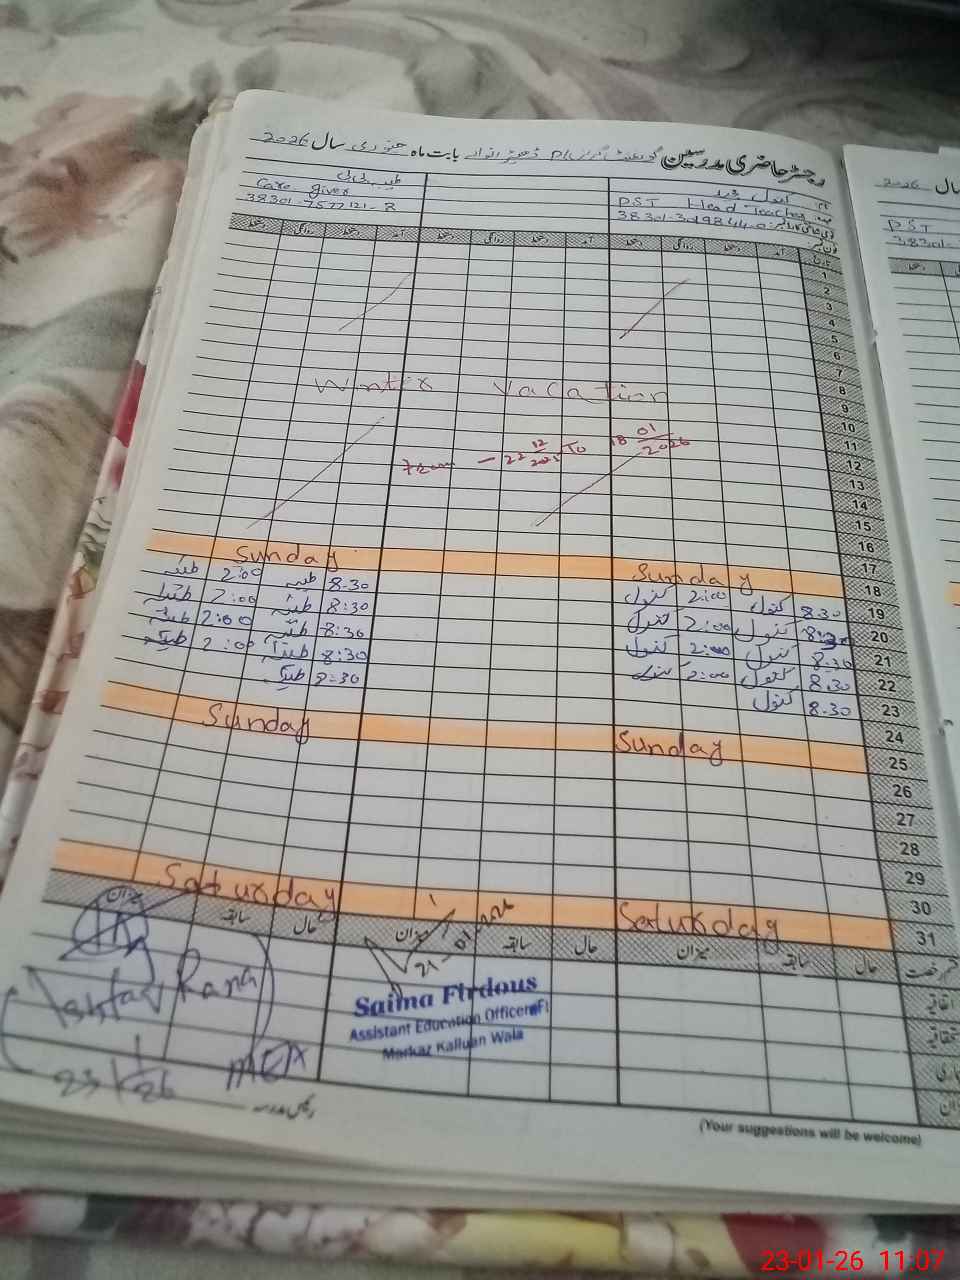 رجسٹر حاضری مدرسین گورنمنٹ گرلز P/S بابت ماہ جنوری سال 2026
PST Head Teacher
طیبہ بی بی
Care giver
38301-7577121-8
آمد دستخط روانگی دستخط آمد دستخط روانگی دستخط آمد دستخط روانگی دستخط
1
2
3
4
5
6
7
8
Winter Vacation
9
10
11
From – 22 12/2025 To 18 01/2026
12
13
14
15
16
17
18 Sunday Sunday
19 8.30 کنول 2:00 کنول 8.30 طیبہ 2:00 طیبہ
20 8:30 کنول 2:00 کنول 8:30 طیبہ 2:00 طیبہ
21 8.30 کنول 2:00 کنول 8:30 طیبہ 2:00 طیبہ
22 8.30 کنول 2:00 کنول 8:30 طیبہ 2:00 طیبہ
23 8.30 کنول 8:30 طیبہ
24
25 Sunday Sunday
26
27
28
29
30
31 Saturday Saturday
حال سابقہ میزان حال سابقہ میزان حال سابقہ میزان
اتفاقیہ
21-01-2026
Saima Firdous
Assistant Education Officer
Markaz Kalluan Wala
23/1/26 MEA
رئیس مدرسہ
(Your suggestions will be welcome)
2026
PST
38301-
23-01-26 11:07